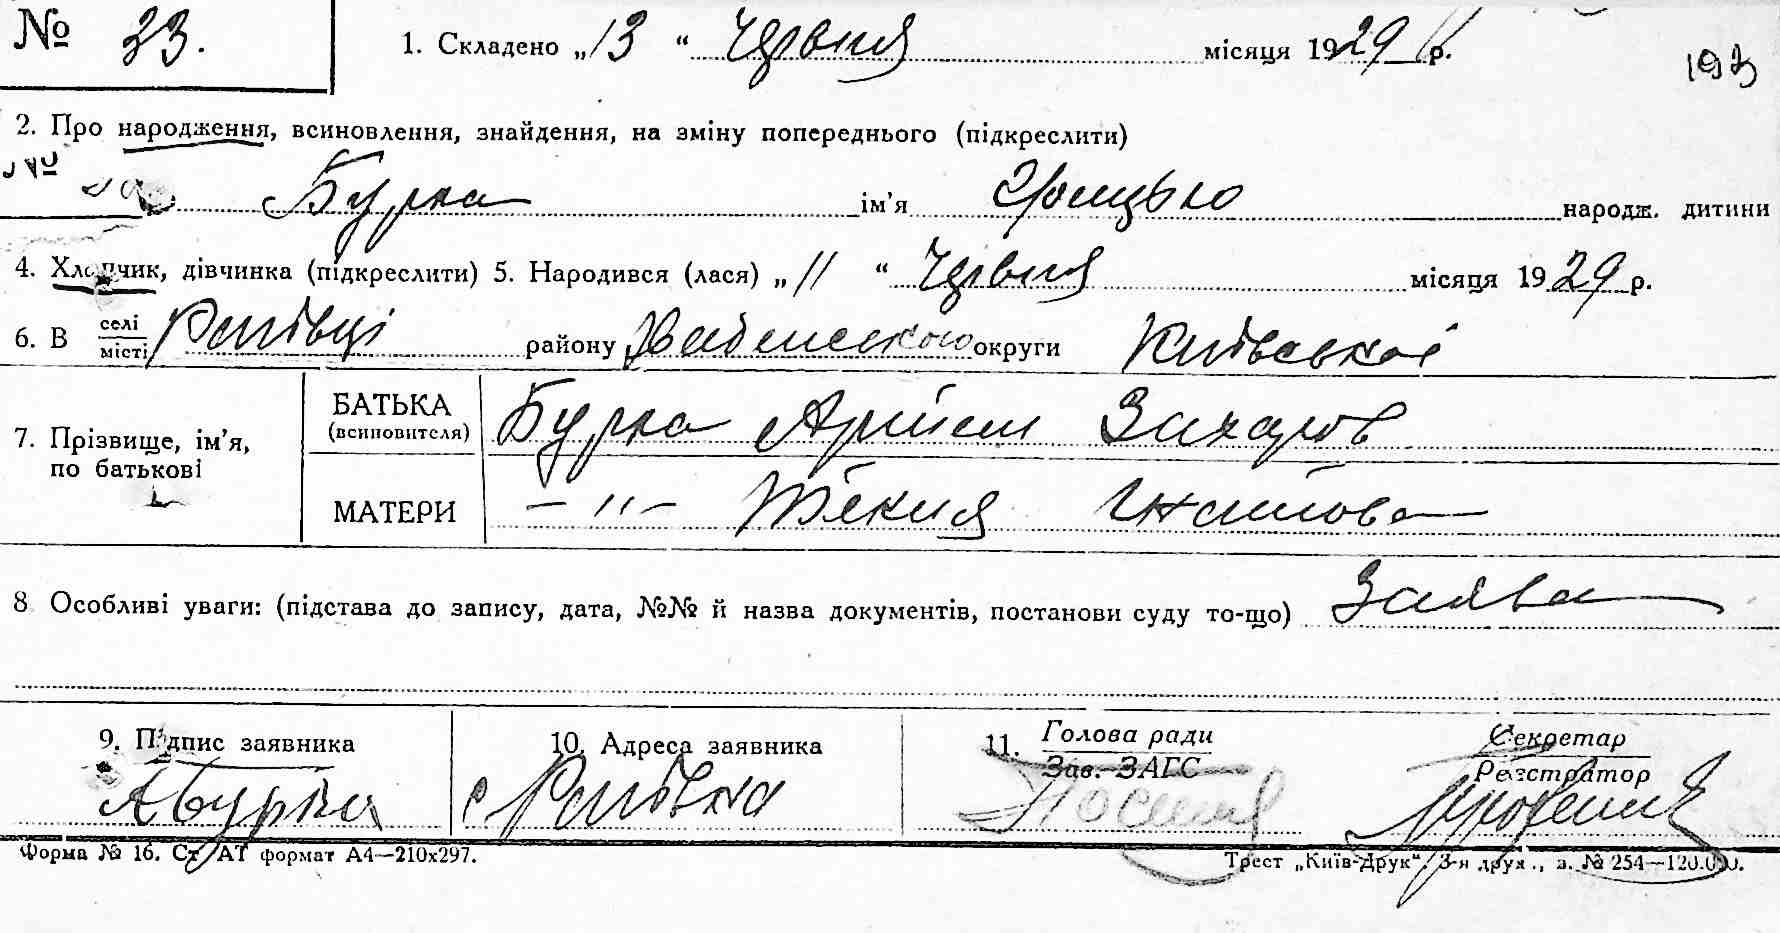 № 33. 1. Складено „13“ Червня місяця 1929 р. 193
2. Про народження, всиновлення, знайдення, на зміну попереднього (підкреслити)
№
Бурка ім’я Грицько народж. дитини
4. Хлопчик, дівчинка (підкреслити) 5. Народився (лася) „11“ Червня місяця 1929 р.
6. В селі місті району округи Київської
7. Прізвище, ім’я, по батькові
БАТЬКА (всиновителя) Бурка Артем Захаров
МАТЕРИ –〃– Текля Гнатова
8 Особливі уваги: (підстава до запису, дата, №№ й назва документів, постанови суду то-що) Заява
9. Підпис заявника 10. Адреса заявника 11. Голова ради Секретар
Зав. ЗАГС Реєстратор
А Бурка с
Форма № 16. Ст АТ формат А4—210х297. Трест „Київ-Друк“. 3-я друк., з. № 254—120.000.